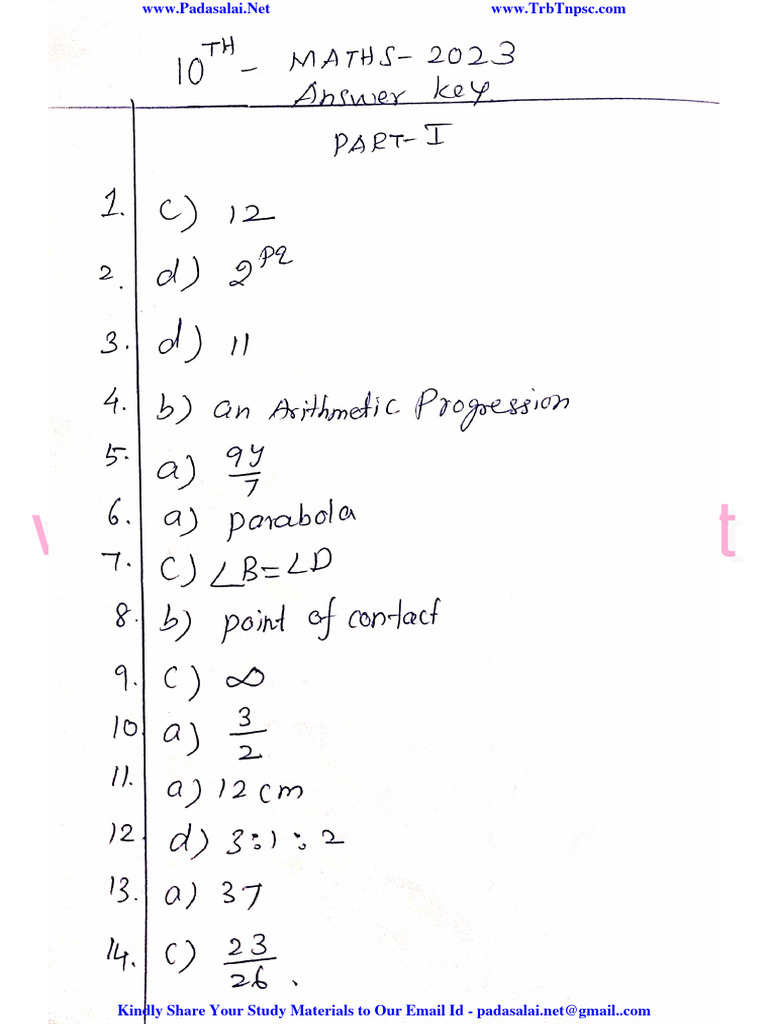 www.Padasalai.Net www.TrbTnpsc.com
10TH - MATHS - 2023
Answer key
PART-I
1. c) 12
2. d) 2^pq
3. d) 11
4. b) an Arithmetic Progression
5. a) 9y/7
6. a) parabola
7. c) ∠B=∠D
8. b) point of contact
9. c) ∞
10. a) 3/2
11. a) 12 cm
12. d) 3:1:2
13. a) 37
14. c) 23/26.
Kindly Share Your Study Materials to Our Email Id - padasalai.net@gmail..com